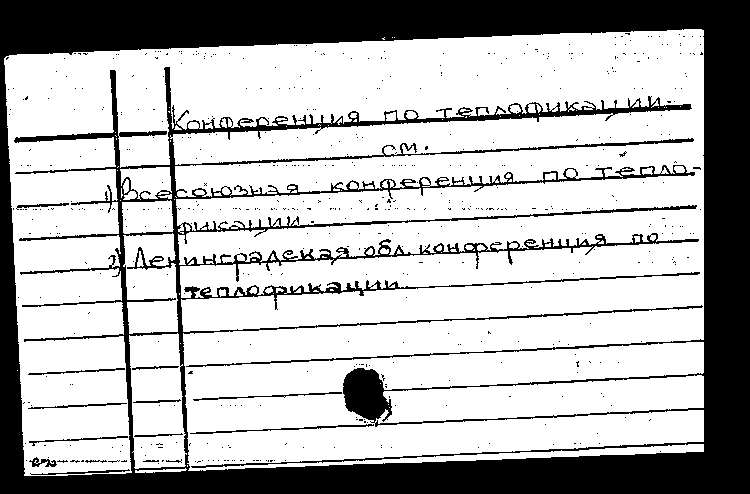 Конференция по теплофикации.
см.
1) Всесоюзная конференция по тепло-
фикации.
2) Ленинградская обл. конференция по
теплофикации.